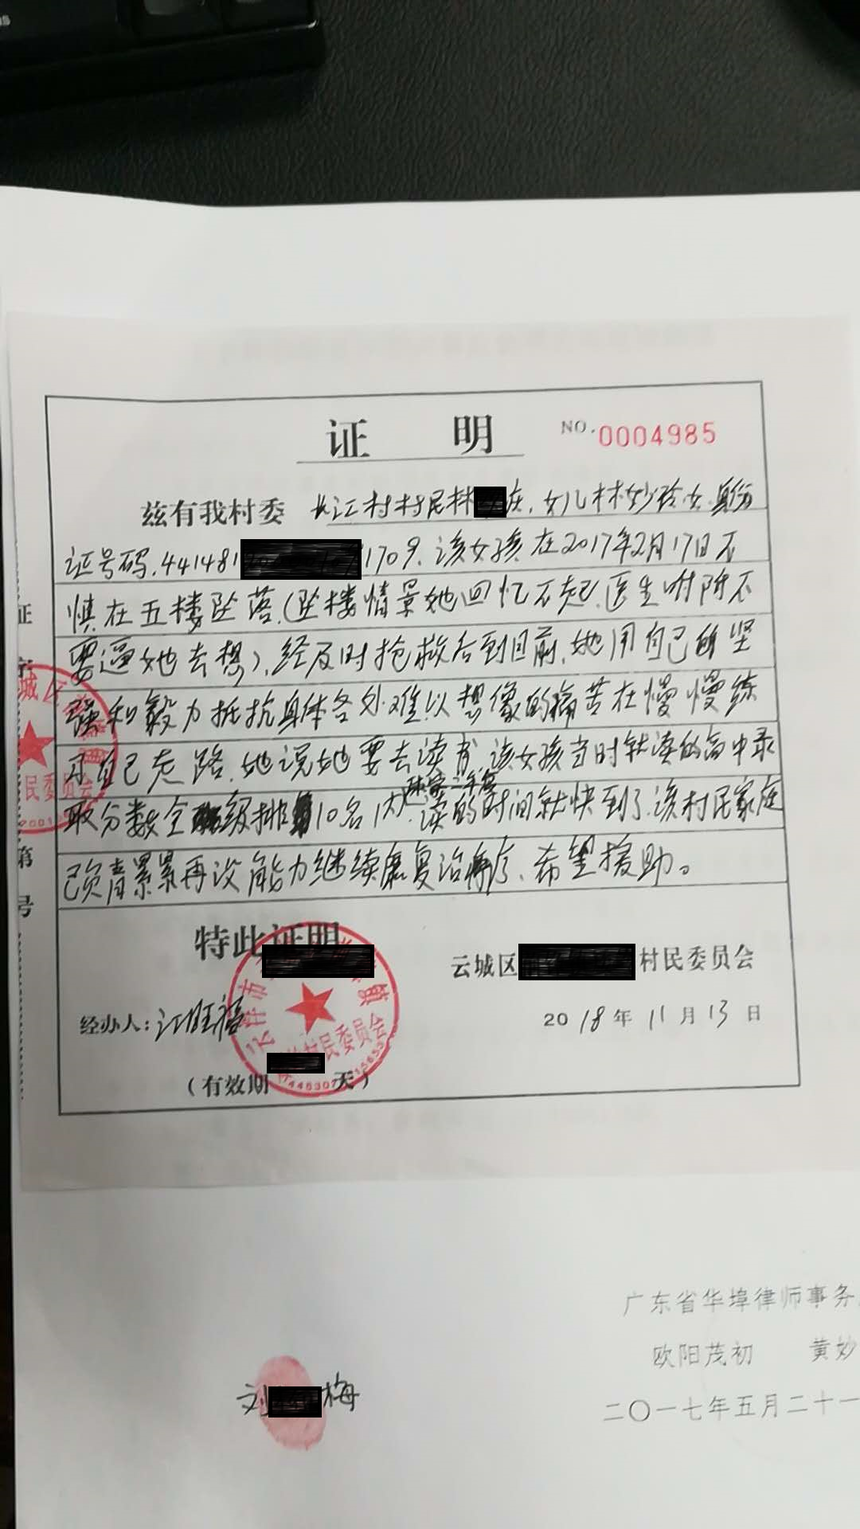 证 明 NO.0004985
兹有我村委 长江村村民林 在，女儿林妙玲女，身份
证号码，441481 1709，该女孩在2017年2月17日不
慎在五楼坠落，（坠楼情景她回忆不起，医生吩咐不
要逼她去想），经及时抢救后到目前，她用自己的坚
强和毅力抵抗身体各处难以想像的痛苦在慢慢练
习自己走路，她说她要去读书，该女孩当时就读的高中录
取分数全 级排 10名内，读的时间就快到了，该村民家庭
已负责累累再没能力继续康复治疗，希望援助。
特此证明
云城区 村民委员会
经办人：江旺福
2018年11月13日
（有效期 天）
证
字
第
号
村民委员会
民委员会
刘 梅
广东省华埠律师事务
欧阳茂初 黄妙
二〇一七年五月二十一